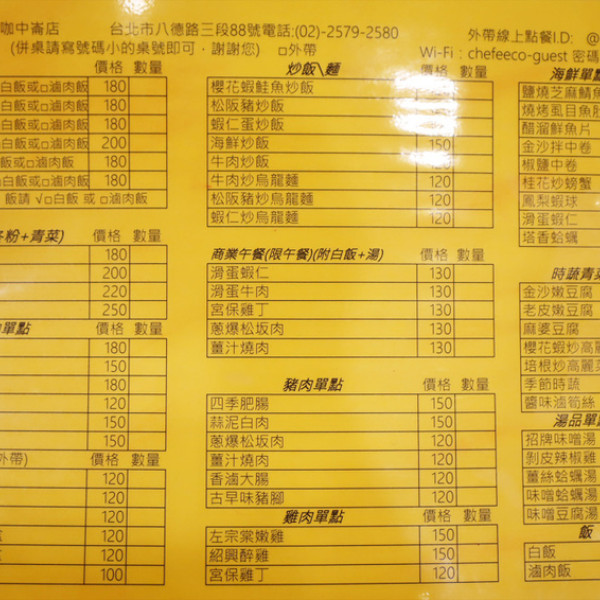 咖中崙店 台北市八德路三段88號電話:(02)-2579-2580 外帶線上點餐I.D: @
(併桌請寫號碼小的桌號即可，謝謝您) □外帶 Wi-Fi : chefeeco-guest 密碼
價格 數量
白飯或□滷肉飯 180
白飯或□滷肉飯 180
白飯或□滷肉飯 180
白飯或□滷肉飯 200
飯或□滷肉飯 180
白飯或□滷肉飯 180
飯請 √□白飯 或 □滷肉飯
冬粉+青菜) 價格 數量
180
200
220
250
單點 價格 數量
180
150
180
120
150
150
外帶) 價格 數量
120
120
120
120
120
100
炒飯\麵
櫻花蝦鮭魚炒飯
松阪豬炒飯
蝦仁蛋炒飯
海鮮炒飯 150
牛肉炒飯 120
牛肉炒烏龍麵 120
松阪豬炒烏龍麵 120
蝦仁炒烏龍麵 120
商業午餐(限午餐)(附白飯+湯) 價格 數量
滑蛋蝦仁 130
滑蛋牛肉 130
宮保雞丁 130
蔥爆松坂肉 130
薑汁燒肉 130
豬肉單點 價格 數量
四季肥腸 150
蒜泥白肉 150
蔥爆松坂肉 150
薑汁燒肉 150
香滷大腸 120
古早味豬腳 120
雞肉單點 價格 數量
左宗棠嫩雞 150
紹興醉雞 150
宮保雞丁 120
海鮮單點
鹽燒芝麻鯖魚
燒烤虱目魚肚
醋溜鮮魚片
金沙拌中卷
椒鹽中卷
桂花炒螃蟹
鳳梨蝦球
滑蛋蝦仁
塔香蛤蠣
時蔬青菜
金沙嫩豆腐
老皮嫩豆腐
麻婆豆腐
櫻花蝦炒高麗
培根炒高麗菜
季節時蔬
醬味滷筍絲
湯品單點
招牌味噌湯
剝皮辣椒雞
薑絲蛤蠣湯
味噌蛤蠣湯
味噌豆腐湯
飯
白飯
滷肉飯